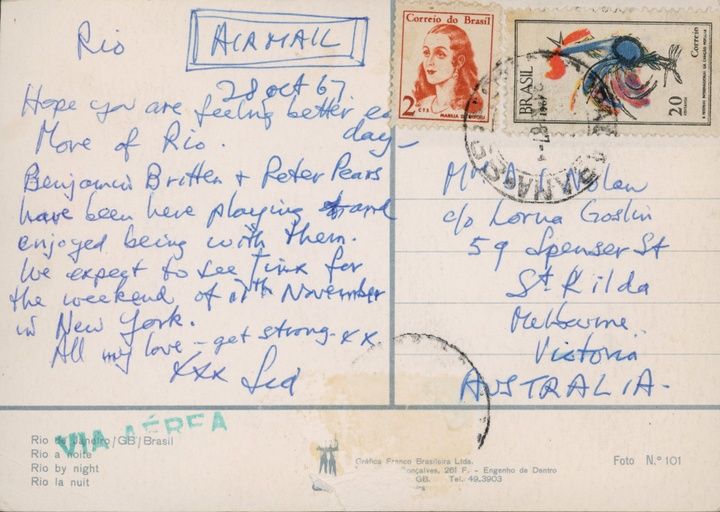 Rio
AIRMAIL
28 Oct 67
Hope you are feeling better ea
day-
More of Rio.
Benjamin Britten & Peter Pears
have been here playing and
enjoyed being with them.
We expect to see Jinx for
the weekend of 11th November
in New York.
All my love - get strong - xx
xxx Sid
Correio do Brasil
2 CTS
MARILIA DE DIRCEU
BRASIL
1967
Correio
II FESTIVAL INTERNACIONAL DA CANÇÃO POPULAR
20
CENTAVOS
Nolan
c/o Lorna Goslin
59 Spenser St
St Kilda
Melbourne
Victoria
AUSTRALIA-
VIA AÉREA
Rio de Janeiro/GB/Brasil
Rio a noite
Rio by night
Rio la nuit
Gráfica Franco Brasileira Ltda.
Gonçalves, 261 F. - Engenho de Dentro
GB. Tel. 49.3903
Foto N.º 101